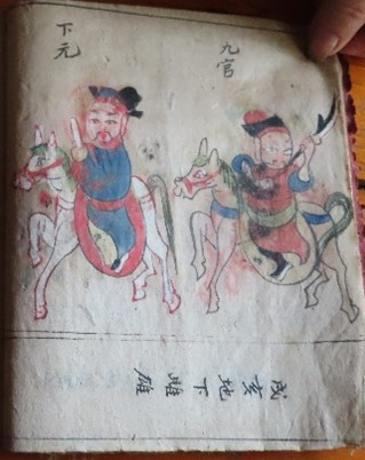 九官
下元
戌亥地下雌雄